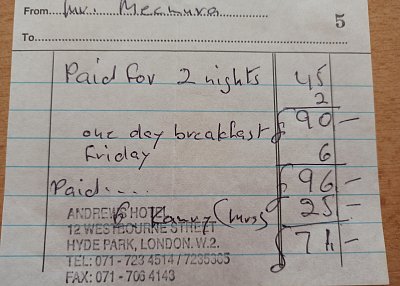 From Mr. Mechura
5
To
Paid for 2 nights 45
2
£ 90 —
one day breakfast
Friday 6
Paid.... £ 96 —
25 —
£ 71 —
ANDREWS HOTEL
12 WESTBOURNE STREET
HYDE PARK, LONDON. W.2.
TEL: 071 - 723 4514 / 7235365
FAX: 071 - 706 4143